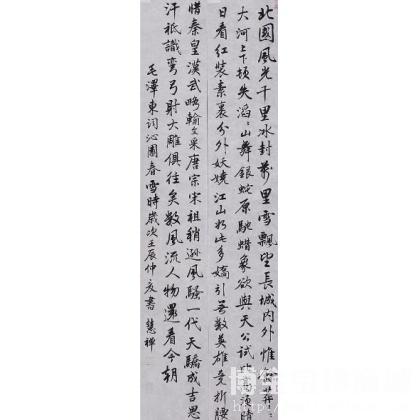 北國風光千里冰封萬里雪飄望長城內外惟餘莽〻
大河上下頓失滔〻山舞銀蛇原馳蜡象欲與天公試比高須晴
日看紅裝素裹分外妖嬈江山如此多嬌引無數英雄競折腰
惜秦皇漢武略輸文采唐宗宋祖稍遜風騷一代天驕成吉思
汗祇識彎弓射大雕俱往矣數風流人物還看今朝
毛澤東詞沁園春雪時歲次壬辰仲亥書慧禅